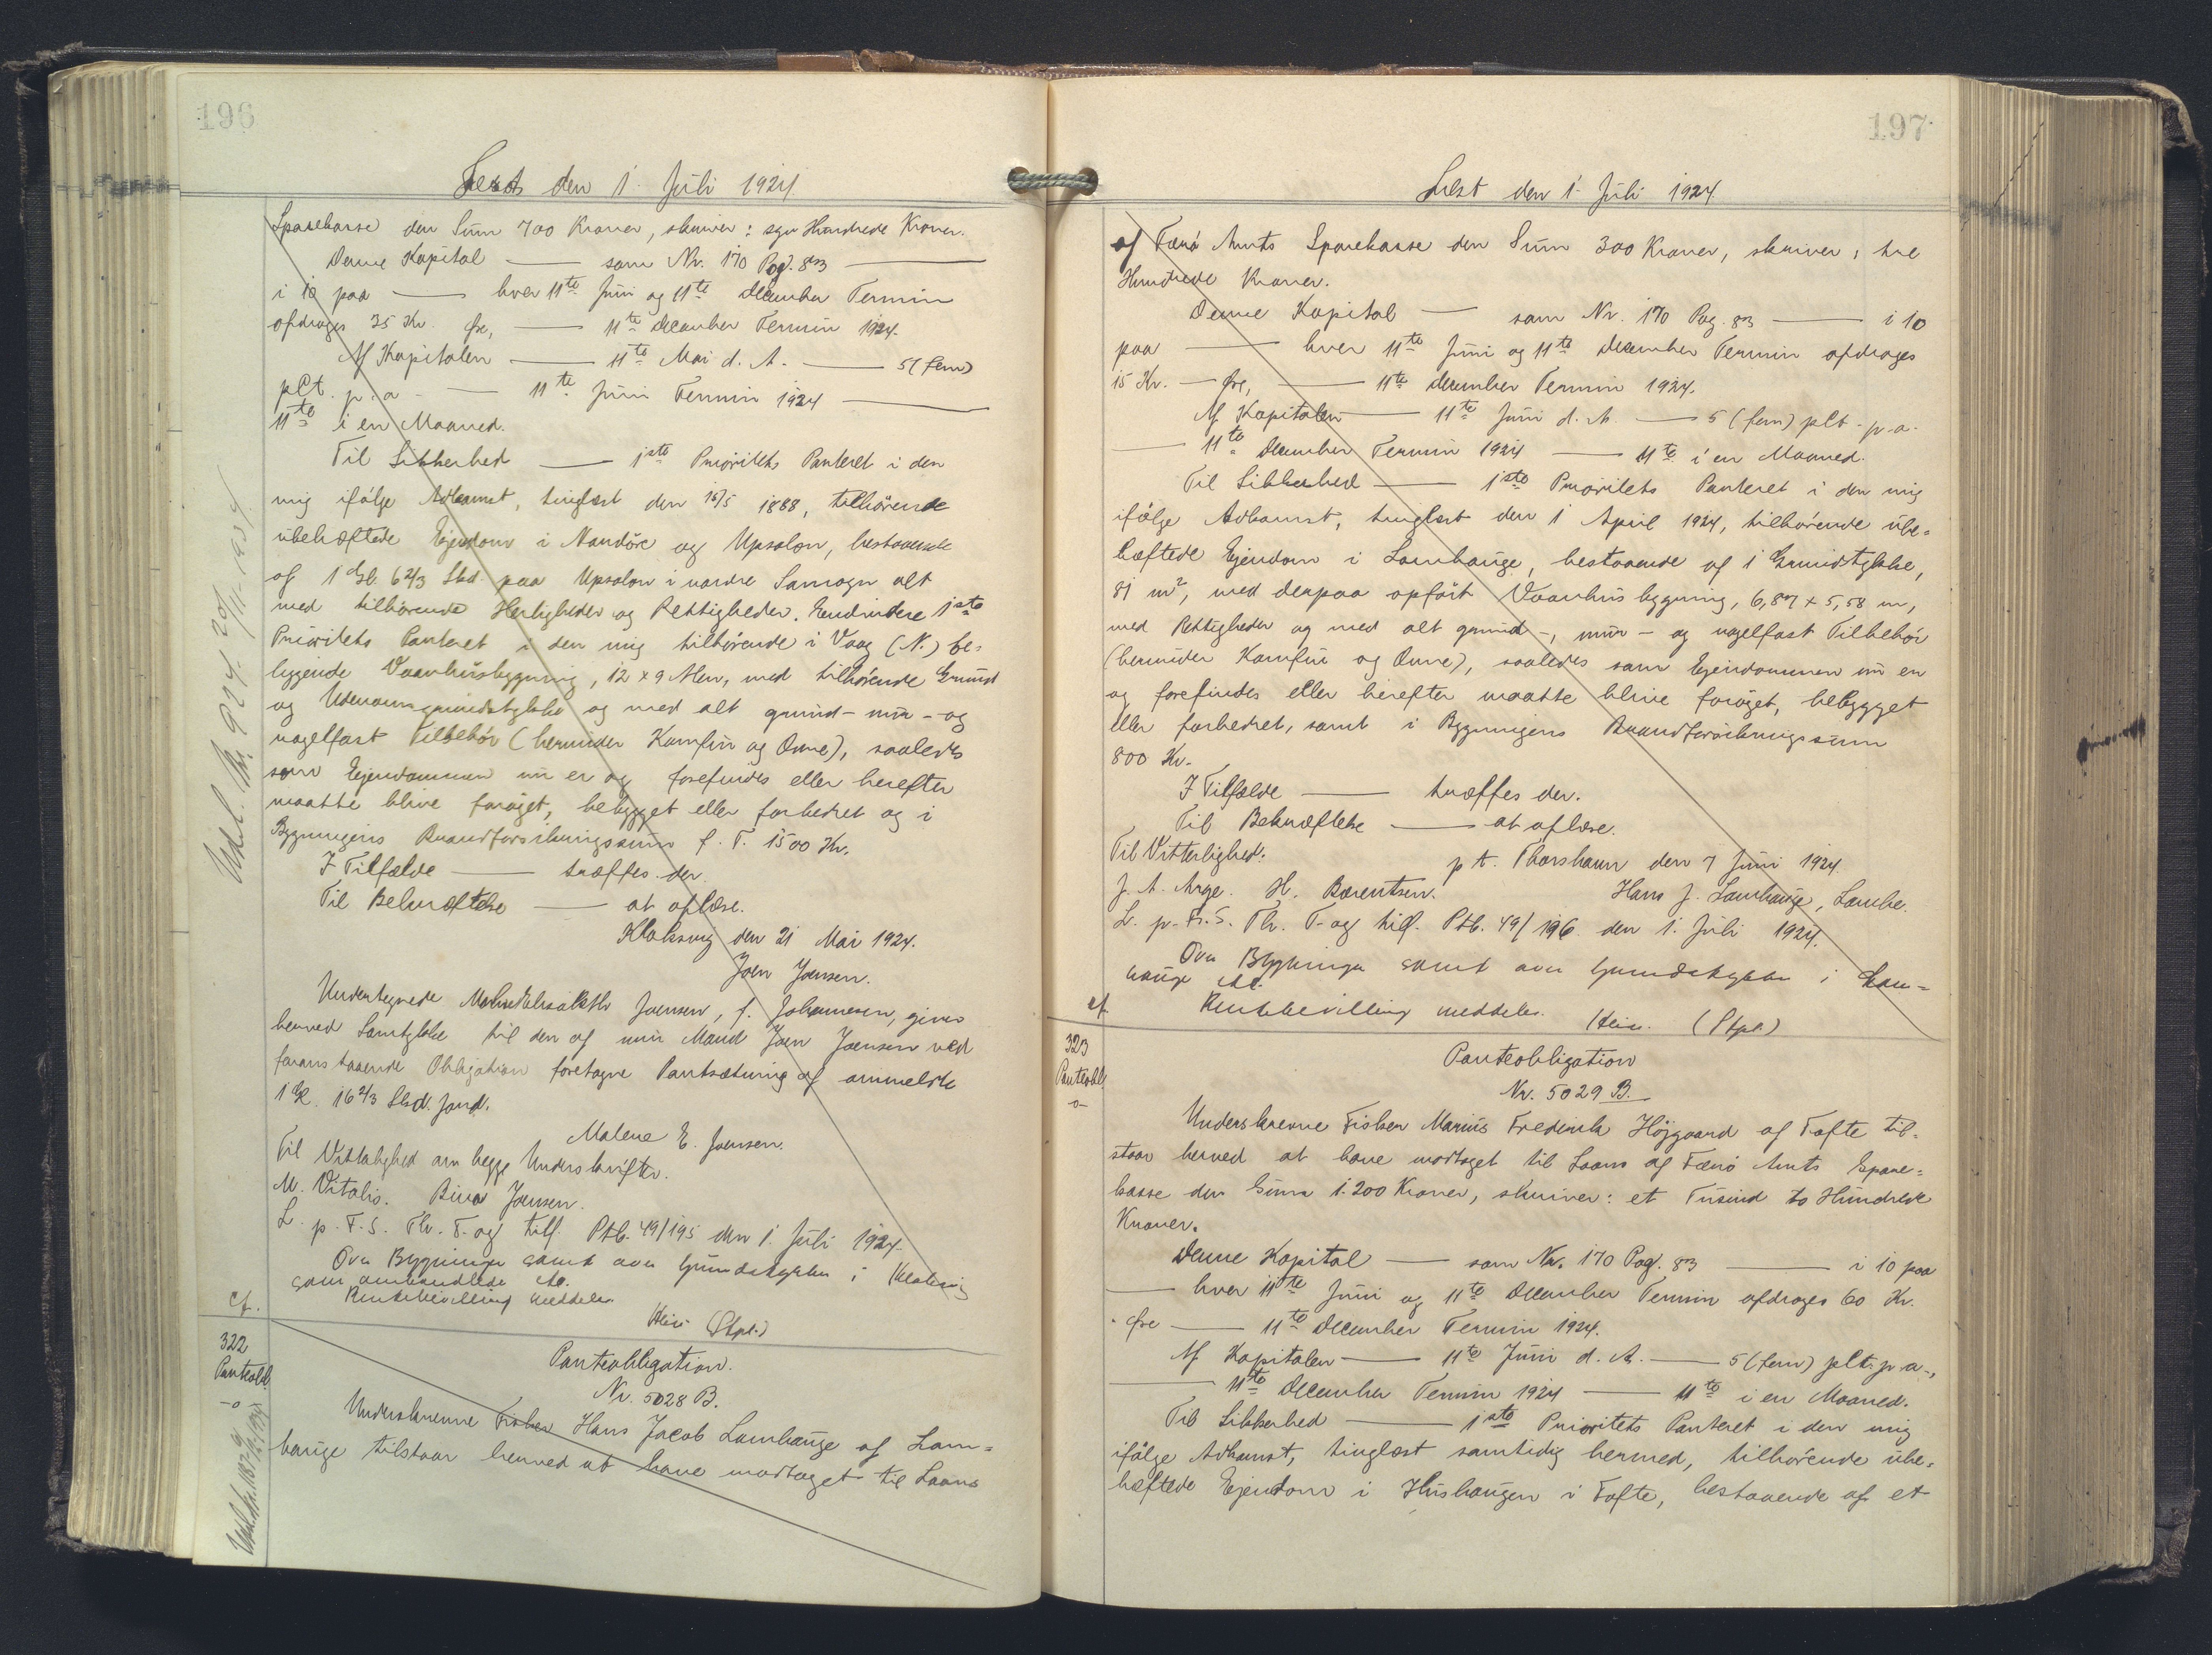 196
Læst den 1. Juli 1924
Sparekasse den Sum 700 Kroner, skriver: syv Hundrede Kroner.
Denne Kapital — som Nr. 170 Pag. 83 —
i 10 paa — hver 11te Juni og 11te December Termin
afdrages 35 Kr. Øre, — 11te December Termin 1924.
Af Kapitalen — 11te Mai d. A. — 5 (fem)
pCt. p. a. — 11te Juni Termin 1924 —
11te i en Maaned.
Til Sikkerhed — 1ste Prioritets Panteret i den
mig ifølge Adkomst, tinglæst den 16/5 1888, tilhørende
ubehæftede Ejendom i og Upsalon, bestaaende
af 1 Gl. 6 2/3 Skd. paa Upsalon i nordre Samogn alt
med tilhørende Herligheder og Rettigheder. Endvidere 1ste
Prioritets Panteret i den mig tilhørende i Vaag (N.) be-
liggende Vaanhusbygning, 12 x 9 Alen, med tilhørende Grund
og Udenomsgrundstykke og med alt grund- mur- og
nagelfast Tilbehør (herunder Komfur og Ovne), saaledes
som Ejendommen nu er og forefindes eller herefter
maatte blive forøget, bebygget eller forbedret og i
Bygningens Brandforsikringssum f. T. 1500 Kr.
I Tilfælde — træffes der.
Til Bekræftelse — at aflæse.
Klaksvig den 21 Mai 1924.
Joen Joensen.
Undertegnede Joensen, f. Johannesen, giver
herved Samtykke til den af min Mand Joen Joensen ved
foranstaaende Obligation foretagne Pantsætning af ommeldte
1 Gl. 16 2/3 Skd. Jord.
Malene E. Joensen.
Til Vitterlighed om begge Underskrifter.
M. Vitalis. Joensen.
L. p. F. S. Th. T. og tilf. Ptb. 49/195 den 1. Juli 1924.
Over Bygninger samt over Grundstykker i Klaksvig
som ommeldte
Rentebevilling meddeles.
(Stpl.)
cf.
Udsl. Nr. 924. 29/11-1934.
322
Panteobl
-o-
Panteobligation.
Nr. 5028 B.
Underskrevne Fisker Hans Jacob Lamhauge af Lam-
hauge tilstaar herved at have modtaget til Laans
197
Læst den 1. Juli 1924.
af Færø Amts Sparekasse den Sum 300 Kroner, skriver: tre
Hundrede Kroner.
Denne Kapital — som Nr. 170 Pag. 83 — i 10
paa — hver 11te Juni og 11te December Termin afdrages
15 Kr. — Øre, — 11te December Termin 1924.
Af Kapitalen — 11te Juni d. A. — 5 (fem) pCt. p. a.
— 11te December Termin 1924 — 11te i en Maaned.
Til Sikkerhed — 1ste Prioritets Panteret i den mig
ifølge Adkomst, tinglæst den 1 April 1924, tilhørende ube-
hæftede Ejendom i Lamhauge, bestaaende af 1 Grundstykke,
81 m², med derpaa opført Vaanhusbygning, 6,87 x 5,58 m,
med Rettigheder og med alt grund-, mur- og nagelfast Tilbehør
(herunder Komfur og Ovne), saaledes som Ejendommen nu er
og forefindes eller herefter maatte blive forøget, bebygget
eller forbedret, samt i Bygningens Brandforsikringssum
800 Kr.
I Tilfælde — træffes der.
Til Bekræftelse — at aflæse.
Til Vitterlighed. p t. Thorshavn den 7 Juni 1924.
J. A. Arge. H. Berentsen. Hans J. Lamhauge, Lambe.
L. p. F. S. Th. T. og tilf. Ptb. 49/196 den 1. Juli 1924.
Over Bygninger samt over Grundstykker i Lam-
hauge
Rentebevilling meddeles. (Stpl.)
cf.
323
Panteobl
-o-
Panteobligation
Nr. 5029 B.
Underskrevne Fisker Marius Frederik Højgaard af Tofte til-
staar herved at have modtaget til Laans af Færø Amts Spare-
kasse den Sum 1.200 Kroner, skriver: et Tusind to Hundrede
Kroner.
Denne Kapital — som Nr. 170 Pag. 83 — i 10 paa
— hver 11te Juni og 11te December Termin afdrages 60 Kr.
- Øre — 11te December Termin 1924.
Af Kapitalen — 11te Juni d. A. — 5 (fem) pCt. p. a.,
— 11te December Termin 1924 — 11te i en Maaned.
Til Sikkerhed — 1ste Prioritets Panteret i den mig
ifølge Adkomst, tinglæst samtidig hermed, tilhørende ube-
hæftede Ejendom i Hushaugen i Tofte, bestaaende af et